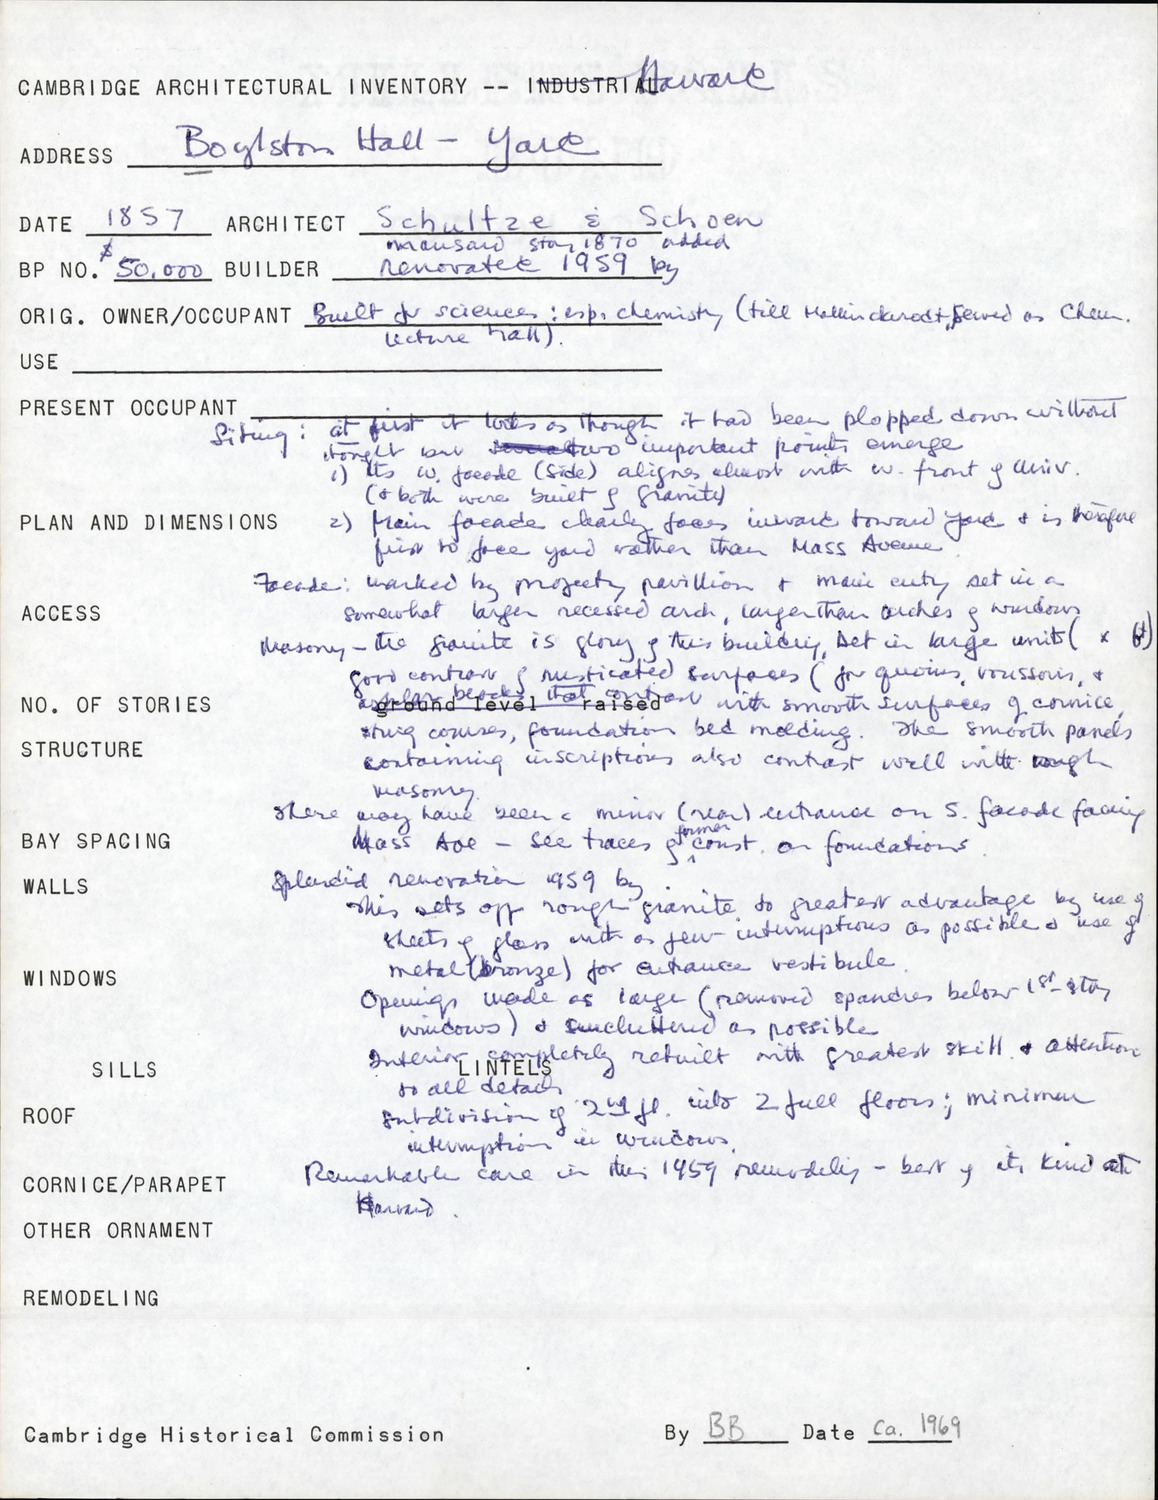 CAMBRIDGE ARCHITECTURAL INVENTORY -- INDUSTRIAL Harvard
ADDRESS Boylston Hall - Yard
DATE 1857 ARCHITECT Schultze & Schoen
mansard story 1870 added
BP NO. $50,000 BUILDER renovated 1959 by
ORIG. OWNER/OCCUPANT Built for sciences: esp. chemistry (till Mallinckrodt, served as Chem.
lecture hall).
USE
PRESENT OCCUPANT
Siting: at first it looks as though it had been plopped down without
thought but several two important points emerge
1) Its w. facade (side) aligns almost with w. front of Univ.
(& both were built of granite)
PLAN AND DIMENSIONS 2) Main facade clearly faces inward toward yard & is therefore
first to face yard rather than Mass Avenue.
Facade: marked by projecting pavillion & main entry set in a
ACCESS somewhat larger recessed arch, larger than arches of windows
Masonry - the granite is glory of this building, set in large units ( x ft)
good contrast of rusticated surfaces (for quoins, voussoirs, &
NO. OF STORIES ground level raised ashlar blocks that contrast with smooth surfaces of cornice,
string courses, foundation bed molding. The smooth panels
STRUCTURE containing inscriptions also contrast well with rough
masonry.
There may have been a minor (rear) entrance on S. facade facing
BAY SPACING Mass Ave - see traces of former const. on foundations.
WALLS Splendid renovation 1959 by .
This sets off rough granite to greatest advantage by use of
sheets of glass with as few interruptions as possible & use of
WINDOWS metal (bronze) for entrance vestibule.
Openings made as large (removed spandrels below 1st-story
windows) & uncluttered as possible
Interior completely rebuilt with greatest skill & attention
SILLS LINTELS to all details
ROOF subdivision of 2nd fl. into 2 full floors; minimum
interruption in windows.
CORNICE/PARAPET Remarkable care in this 1959 remodeling - best of its kind at
Harvard.
OTHER ORNAMENT
REMODELING
Cambridge Historical Commission By BB Date Ca. 1969